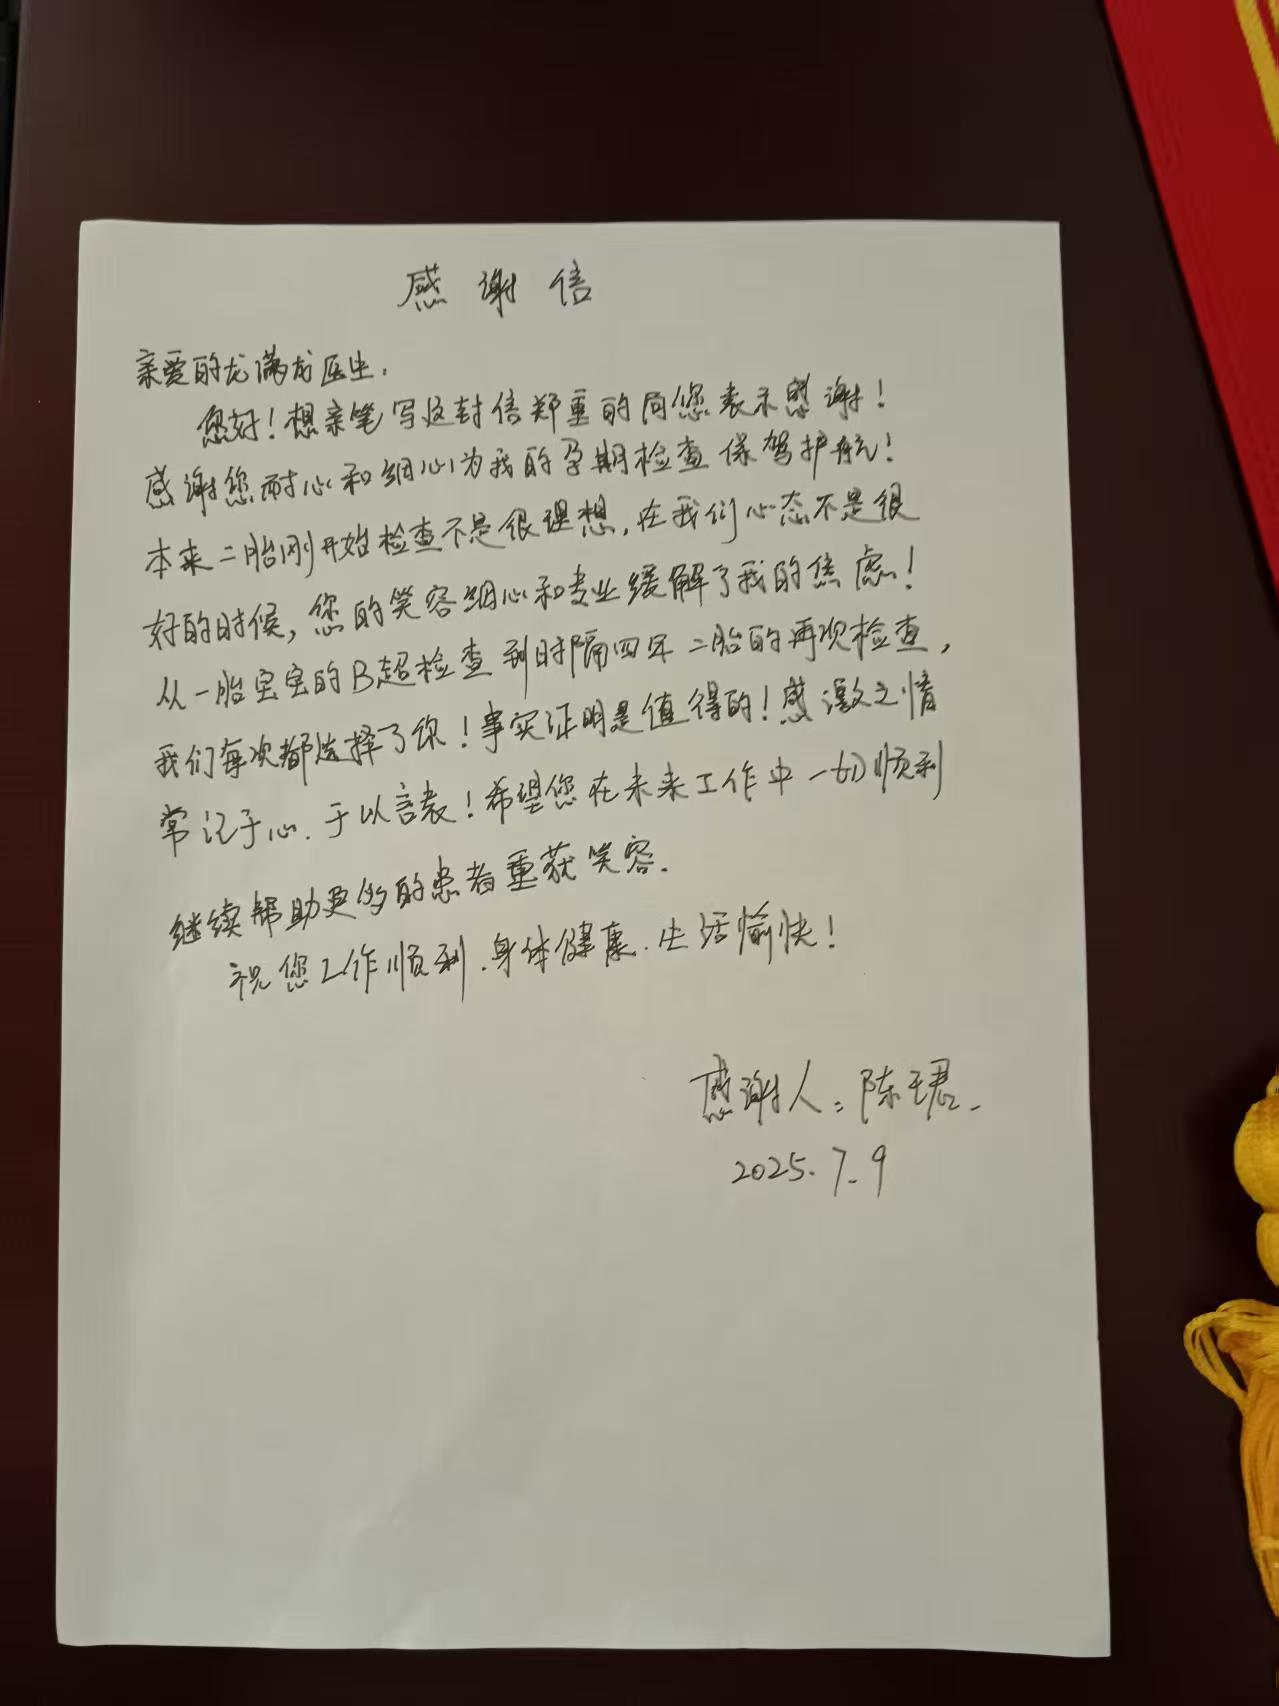 感谢信
亲爱的龙满龙医生.
您好！想亲笔写这封信郑重的向您表示感谢！
感谢您耐心和细心为我的孕期检查保驾护航！
本来二胎刚开始检查不是很理想,在我们心态不是很
好的时候,您的笑容细心和专业缓解了我的焦虑！
从一胎宝宝的B超检查到时隔四年二胎的再次检查,
我们每次都选择了你！事实证明是值得的！感激之情
常记于心.于以言表！希望您在未来工作中一切顺利
继续帮助更多的患者重获笑容.
祝您工作顺利.身体健康.生活愉快！
感谢人:陈珺.
2025.7.9